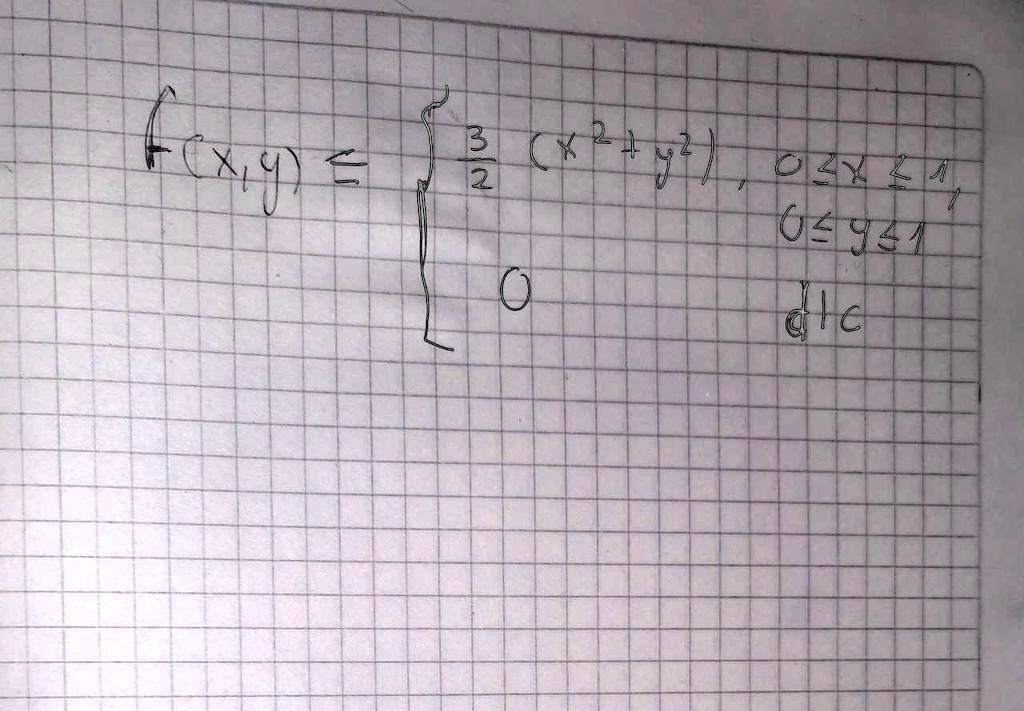 f(x,y) ≤ { 3/2 (x² + y²), 0 ≤ x ≤ 1,
0 ≤ y ≤ 1
0 d|c